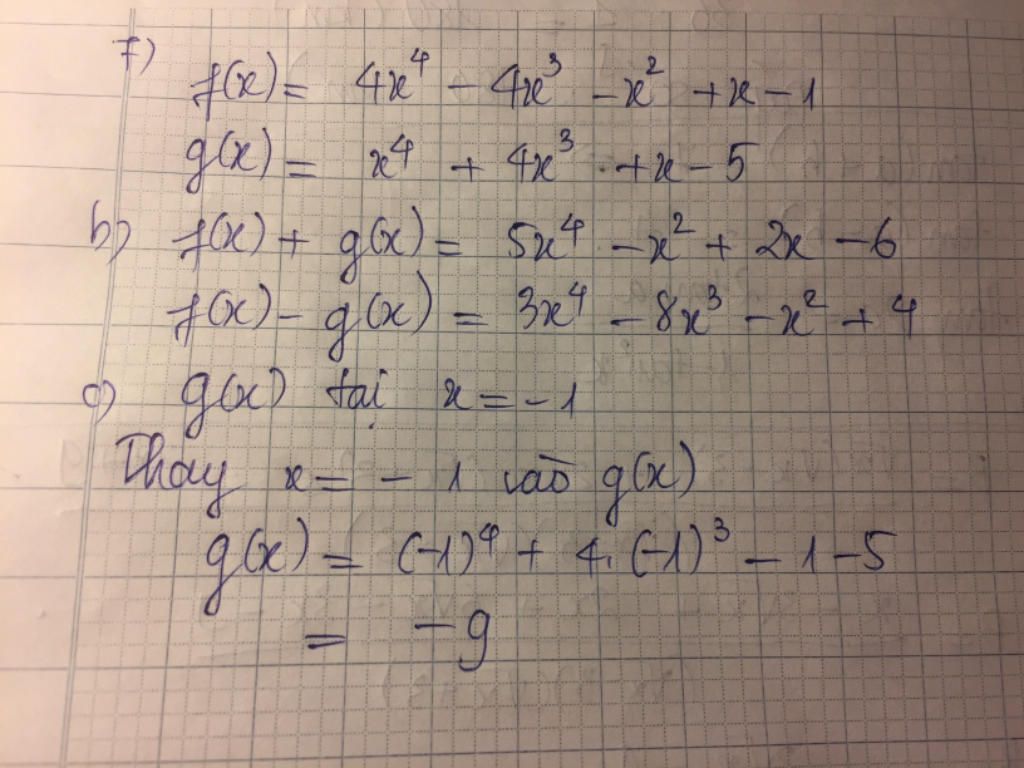 7)
f(x) = 4x⁴ - 4x³ - x² + x - 1
g(x) = x⁴ + 4x³ + x - 5
b) f(x) + g(x) = 5x⁴ - x² + 2x - 6
f(x) - g(x) = 3x⁴ - 8x³ - x² + 4
c) g(x) tại x = -1
Thay x = - 1 vào g(x)
g(x) = (-1)⁴ + 4.(-1)³ - 1 - 5
= - 9